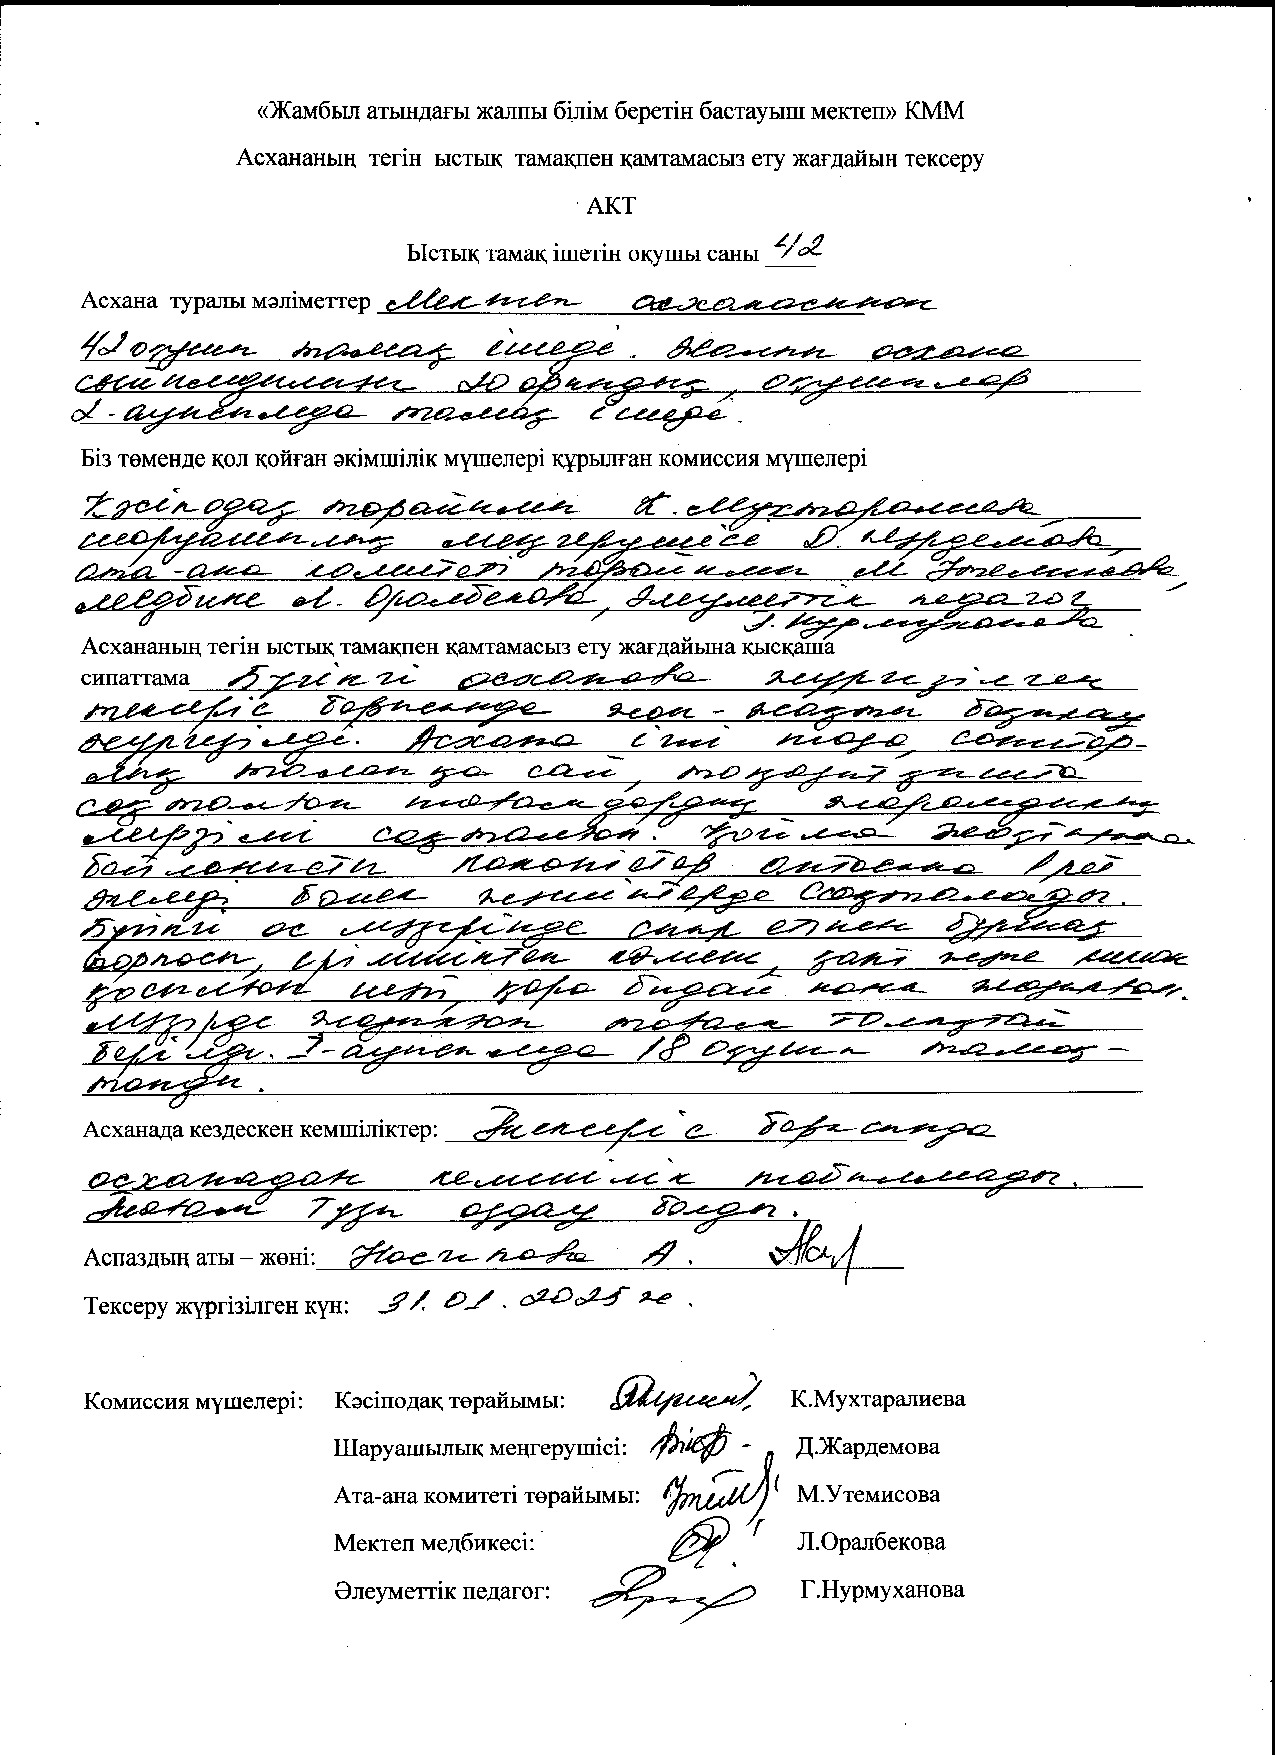 «Жамбыл атындағы жалпы білім беретін бастауыш мектеп» КММ
Асхананың тегін ыстық тамақпен қамтамасыз ету жағдайын тексеру
АКТ
Ыстық тамақ ішетін оқушы саны 42
Асхана туралы мәліметтер Мектеп асханасынан
42 оқушы тамақ ішеді. Жалпы асхана
сыйымдылығы 20 орындық, оқушылар
2-ауысымда тамақ ішеді.
Біз төменде қол қойған әкімшілік мүшелері құрылған комиссия мүшелері
Кәсіподақ төрайымы К. Мухтаралиева,
шаруашылық меңгерушісі Д. Жардемова,
ата-ана комитеті төрайымы М Утемисова,
медбике Л. Оралбекова, әлеуметтік педагог
Г. Нурмуханова
Асхананың тегін ыстық тамақпен қамтамасыз ету жағдайына қысқаша
сипаттама Бүгінгі асханада жүргізілген
тексеріс барысында жан-жақты бақылау
жүргізілді. Асхана іші таза, санитар-
лық талапқа сай, тоңазытқышта
сақталған тағамдардың жарамдылық
мерзімі сақталған.
байланысты көкөністер аптасына 1 рет
әкеледі бөлек жәшіктерде сақталады.
Бүгінгі ас мәзірінде сиыр етімен бұршақ
көрпесі, ірімшіктен көмеш, қант және лимон
қосылған шәй, қара бидай наны жазылған.
Мәзірде жазылған тағам толықтай
берілді. 2-ауысымда 18 оқушы тамақ-
танды.
Асханада кездескен кемшіліктер: Тексеріс барысында
асханадан кемшілік табылмады.
Тағам тұзы аздау болды.
Аспаздың аты – жөні: Насипова А.
Тексеру жүргізілген күн: 31.01.2025 ж.
Комиссия мүшелері: Кәсіподақ төрайымы: К.Мухтаралиева
Шаруашылық меңгерушісі: Д.Жардемова
Ата-ана комитеті төрайымы: М.Утемисова
Мектеп медбикесі: Л.Оралбекова
Әлеуметтік педагог: Г.Нурмуханова